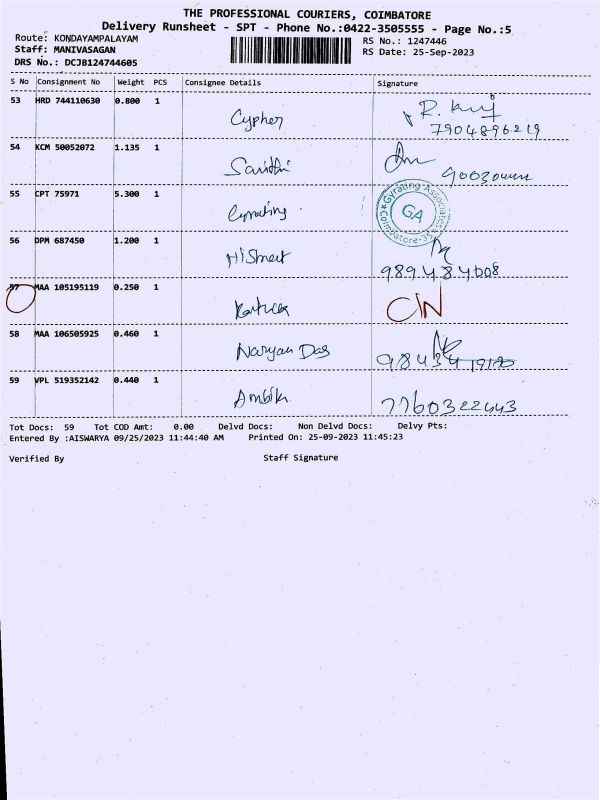 THE PROFESSIONAL COURIERS, COIMBATORE
Delivery Runsheet - SPT - Phone No.:0422-3505555 - Page No.:5
Route: KONDAYAMPALAYAM
RS No.: 1247446
Staff: MANIVASAGAN
RS Date: 25-Sep-2023
DRS No.: DCJB124744605
S No Consignment No Weight PCS Consignee Details Signature
53 HRD 744110630 0.800 1 Cypher R.
7904896219
54 KCM 50052072 1.135 1
55 CPT 75971 5.300 1 Gyrating Gyrating Associates GA Coimbatore-35
56 DPM 687450 1.200 1
9894484008
57 MAA 105195119 0.250 1 CIN
58 MAA 106505925 0.460 1 Naryan Das
59 VPL 519352142 0.440 1 Ambika 7760322443
Tot Docs: 59 Tot COD Amt: 0.00 Delvd Docs: Non Delvd Docs: Delvy Pts:
Entered By :AISWARYA 09/25/2023 11:44:40 AM Printed On: 25-09-2023 11:45:23
Verified By Staff Signature